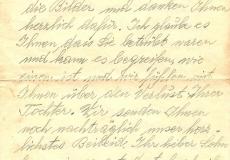 die Bilder und danken Ihnen
herzlich dafür. Ich glaube es
Ihnen dass Sie betrübt waren
und kann es begreifen, wie
ist und wir fühlen mit
Ihnen über den Verlust Ihrer
Tochter. Wir senden Ihnen
noch nachträglich unser herz-
lichstes Beileid. Ihr lieber Sohn